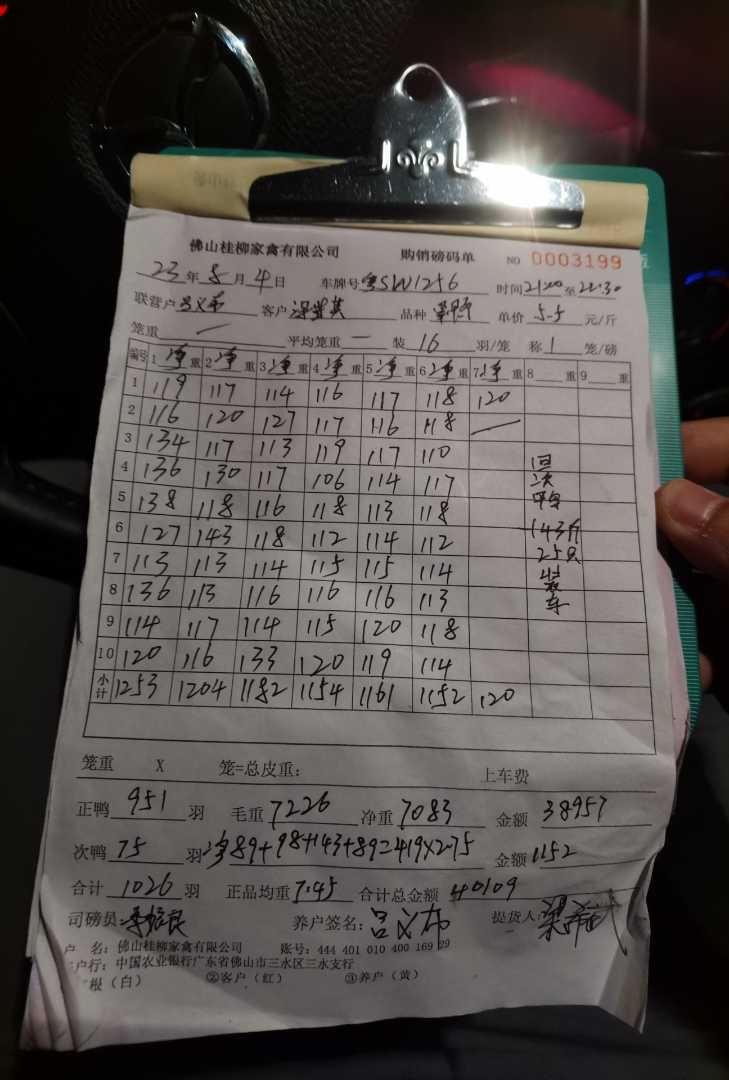 佛山桂柳家禽有限公司 购销磅码单 NO 0003199
23年5月4日 车牌号粤SW1256 时间21:00至22:30
联营户吕义布 客户 品种 单价5.5元/斤
笼重 — 平均笼重 — 装16羽/笼 称1笼/磅
编号 1净重 2净重 3净重 4净重 5净重 6净重 7净重 8重 9重
1 119 117 114 116 117 118 120
2 116 120 127 117 116 118 —
3 134 117 113 119 117 110
4 136 130 117 106 114 117
5 138 118 116 118 113 118
6 127 143 118 112 114 112
7 113 113 114 115 115 114
8 136 113 116 116 116 113
9 114 117 114 115 120 118
10 120 116 133 120 119 114
小计 1253 1204 1182 1154 1161 1152 120
次
143斤
25只
装
车
笼重 X 笼=总皮重: 上车费
正鸭951羽 毛重7226 净重7083 金额38957
次鸭75羽 净89+98+143+89=419×2.75 金额1152
合计1026羽 正品均重7.45 合计总金额40109
司磅员: 养户签名:吕义布 提货人:
户 名:佛山桂柳家禽有限公司 账号:444 401 010 400 169 29
户行:中国农业银行广东省佛山市三水区三水支行
根(白) ②客户(红) ③养户(黄)